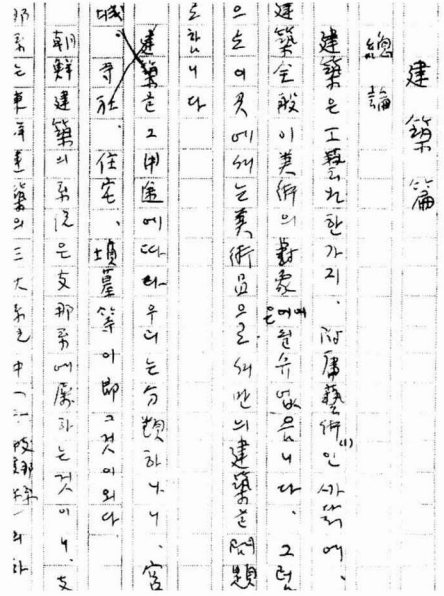 建築篇
總論
建築은 工藝와 한가지, 附庸藝術(1)인 까닭에,
建築全般이 美術의 對象은 될 수 없읍니다. 그럼
으로 이곳에서는 美術品으로서만의 建築을 問題
로 합니다
建築은 그 用途에 따라 우리는 分類하나니, 宮
城, 寺社, 住宅, 墳墓等이 即 그것이외다
朝鮮建築의 系統은 支那系에 屬하는 것이니, 支
那系는 東洋建築의 三大系統中 一